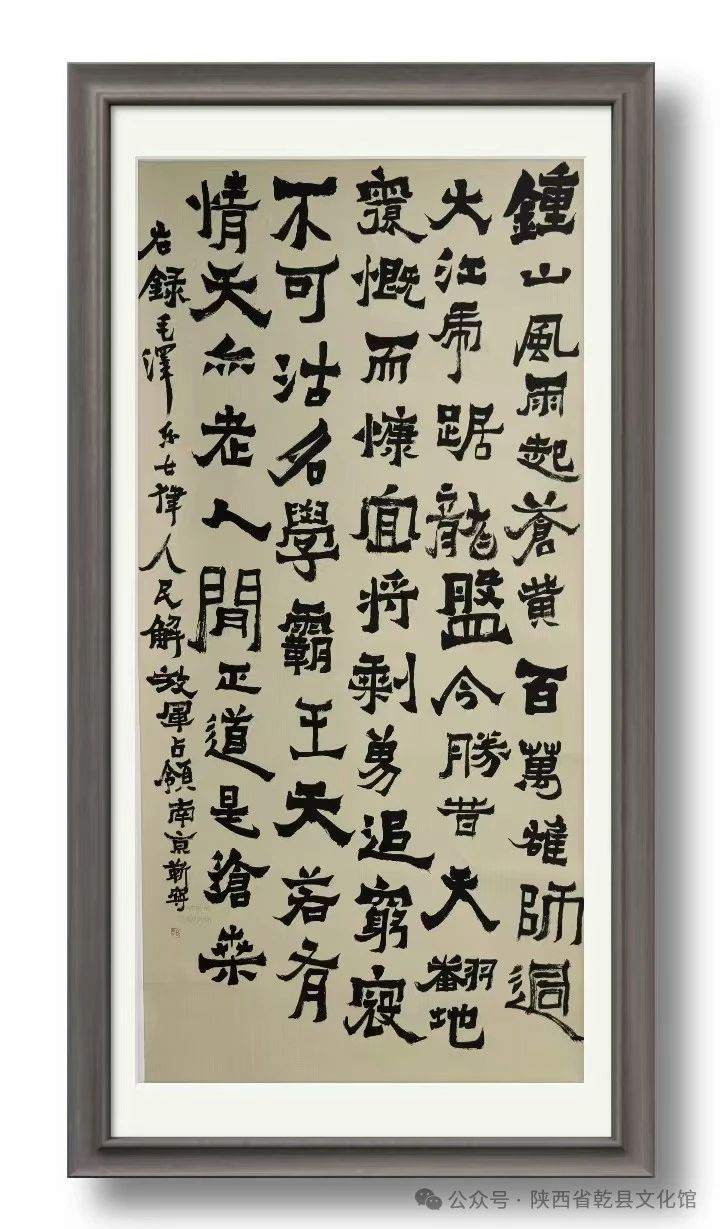 鍾山風雨起蒼黄百萬雄師過
大江虎踞龍盤今勝昔天翻地
覆慨而慷宜将剩勇追窮寇
不可沽名學霸王天若有
情天亦老人間正道是滄桑
右録毛澤东七律人民解放軍占領南京靳
公众号 · 陕西省乾县文化馆